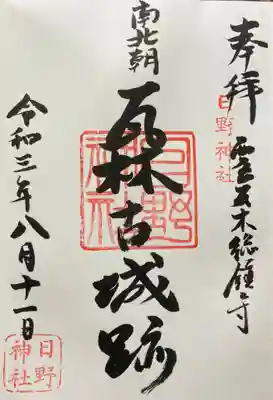 奉拝
日野神社
西宮瓦木総鎮守
南北朝
瓦林古城跡
日野
神社
令和三年八月十一日
日野
神社